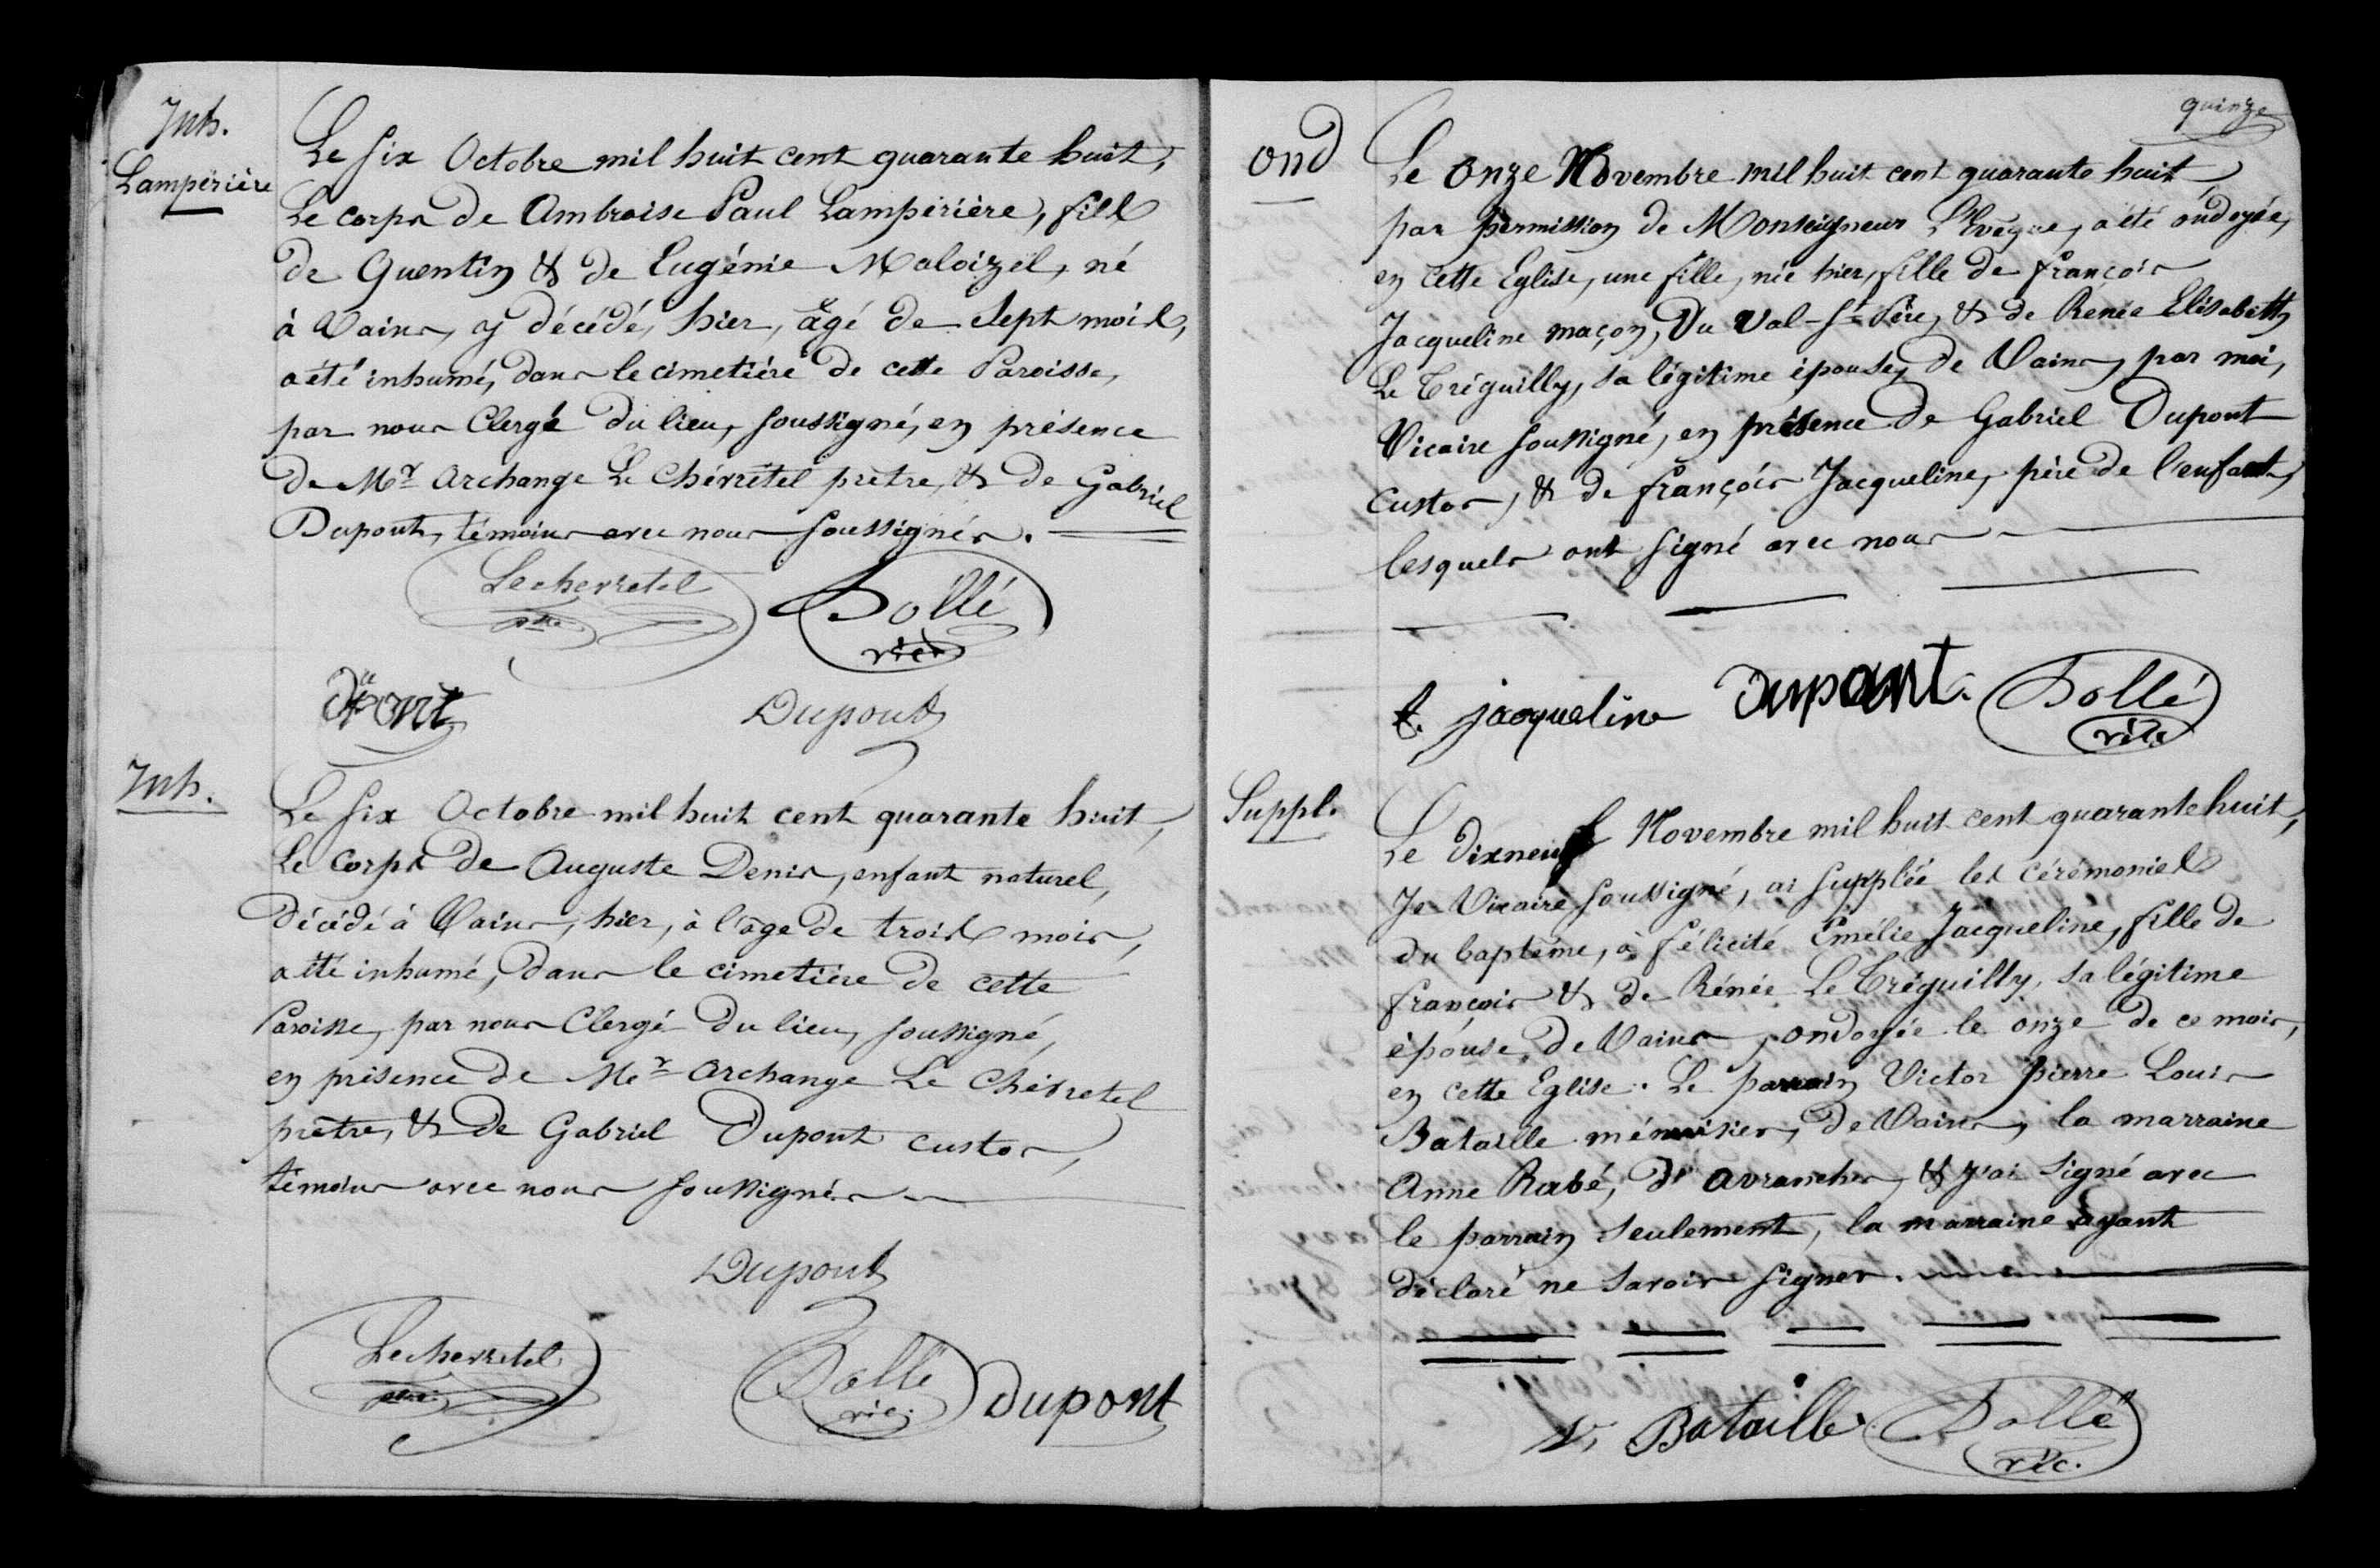 Inh.
Lampérière
Le six Octobre mil huit cent quarante huit,
Le corps de Ambroise Paul Lampérière, fils
de Quentin & de Eugénie Maloizel, né
à Vains, y décédé, hier, âgé de sept mois,
a été inhumé, dans le cimetière de cette Paroisse,
par nous Clergé du lieu, soussigné, en présence
de Mr Archange Le Chévretel prêtre, & de Gabriel
Dupont, témoins avec nous soussignés.
Lecherretel
ptre
Dollé
vic.
Dupont
Inh.
Le six Octobre mil huit cent quarante huit,
Le corps de Auguste Denis, enfant naturel,
décédé à Vains, hier, à l'âge de trois mois,
a été inhumé, dans le cimetière de cette
Paroisse, par nous Clergé du lieu, soussigné,
en présence de Mr Archange Le Chévretel
prêtre, & de Gabriel Dupont custos,
témoins avec nous soussignés
Dupont
Lecherretel
ptre
Dollé
vic.
Dupont
quinze
Ond
Le onze Novembre mil huit cent quarante huit
par permission de Monseigneur L'Evêque, a été ondoyée,
en cette Eglise, une fille, née hier, fille de françois
Jacqueline maçon, Du Val-St Père, & de Renée Elisabeth
Le Tréguilly, sa légitime épouse, de Vains, par moi,
Vicaire soussigné, en présence de Gabriel Dupont
custos, & de françois Jacqueline, père de l'enfant,
lesquels ont signé avec nous
f. jacqueline Dupont. Dollé
vic.
Suppl.
Le dixneuf Novembre mil huit cent quarante huit,
Je Vicaire soussigné, ai supplée les cérémonies
du baptême, à félicité Emélie Jacqueline, fille de
françois & de Rénée Le Tréguilly, sa légitime
épouse, de Vains, ondoyée le onze de ce mois,
en cette Eglise. Le parrain Victor Pierre Louis
Bataille ménuisier, de Vains, la marraine
Anne Rabé, d'Avranches, & j'ai signé avec
le parrain seulement, la marraine ayant
déclaré ne savoir signer.
V. Bataille Dollé
vic.